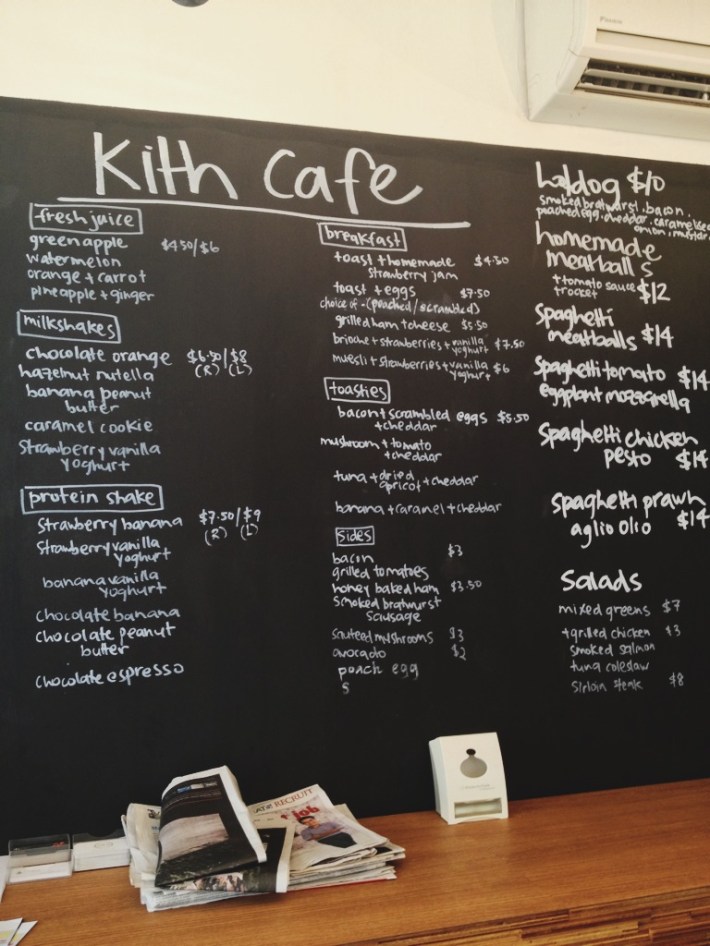 Kith Cafe
fresh juice
green apple $4.50/$6
watermelon
orange + carrot
pineapple + ginger
milkshakes
chocolate orange $6.50/$8
hazelnut nutella (R) (L)
banana peanut
butter
caramel cookie
Strawberry vanilla
yoghurt
protein shake
Strawberry banana $7.50/$9
(R) (L)
Strawberry vanilla
yoghurt
banana vanilla
yoghurt
chocolate banana
chocolate peanut
butter
chocolate espresso
breakfast
toast + homemade $4.50
strawberry jam
toast + eggs $7.50
choice of - (poached/scrambled)
grilled ham + cheese $5.50
brioche + strawberries + vanilla
yoghurt $7.50
muesli + strawberries + vanilla
yoghurt $6
toasties
bacon + scrambled eggs $5.50
+ cheddar
mushroom + tomato
+ cheddar
tuna + dried
apricot + cheddar
banana + caramel + cheddar
sides
bacon $3
grilled tomatoes
honey baked ham $3.50
smoked bratwurst
sausage
sauteed mushrooms $3
avocado $2
poach egg
$
hotdog $10
smoked bratwurst, bacon,
poached egg, cheddar, caramelised
onion, mustar
homemade
meatballs
+ tomato sauce $12
+ rocket
Spaghetti
meatballs $14
Spaghetti tomato $14
eggplant mozzarella
Spaghetti chicken
pesto $14
Spaghetti prawn
aglio olio $14
Salads
mixed greens $7
+ grilled chicken $3
smoked salmon
tuna coleslaw
Sirloin steak $8
RECRUIT
job